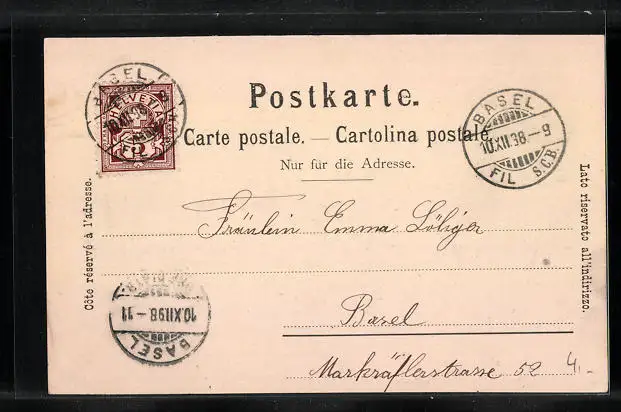 BASEL
HELVETIA
5
Postkarte.
BASEL
10.XII.98.-9
FIL S.C.B.
Carte postale. — Cartolina postale.
Nur für die Adresse.
Côte réservé à l'adresse.
Lato riservato all'indirizzo.
Fräulein Emma
Basel
Markräflerstrasse 52
4.-
10.XII.98-11
BASEL